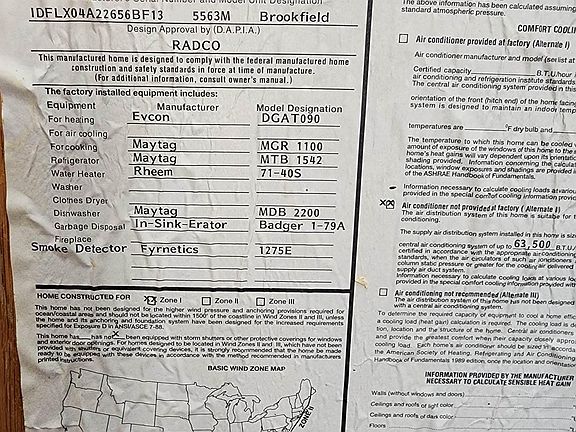 Serial Number and Model Unit Designation
IDFLX04A22656BF13 5563M Brookfield
Design Approval by (D.A.P.I.A.)
RADCO
This manufactured home is designed to comply with the federal manufactured home
construction and safety standards in force at time of manufacture.
(For additional information, consult owner's manual.)
The factory installed equipment includes:
Equipment Manufacturer Model Designation
For heating Evcon DGAT090
For air cooling
For cooking Maytag MGR 1100
Refrigerator Maytag MTB 1542
Water Heater Rheem 71-40S
Washer
Clothes Dryer
Dishwasher Maytag MDB 2200
Garbage Disposal In-Sink-Erator Badger 1-79A
Fireplace
Smoke Detector Fyrnetics 1275E
HOME CONSTRUCTED FOR XX Zone I Zone II Zone III
This home has not been designed for the higher wind pressure and anchoring provisions required for
ocean/coastal areas and should not be located within 1500' of the coastline in Wind Zones II and III, unless
the home and its anchoring and foundation system have been designed for the increased requirements
specified for Exposure D in ANSI/ASCE 7-88.
This home has has not X been equipped with storm shutters or other protective coverings for windows
and exterior door openings. For homes designed to be located in Wind Zones II and III, which have not been
provided with shutters or equivalent covering devices, it is strongly recommended that the home be made
ready to be equipped with these devices in accordance with the method recommended in manufacturers
printed instructions.
BASIC WIND ZONE MAP
ZONE II
The above information has been calculated assuming
standard atmospheric pressure.
COMFORT COOLIN
Air conditioner provided at factory (Alternate I)
Air conditioner manufacturer and model (see list at
Certified capacity B.T.U./hour
air conditioning and refrigeration institute standards
The central air conditioning system provided in this
orientation of the front (hitch end) of the home facing
system is designed to maintain an indoor temp
temperatures are °F dry bulb and
The temperature to which this home can be cooled
amount of exposure of the windows of this home to the
home's heat gains will vary dependent upon its orientation
shading provided. Information concerning the calculation
locations, window exposures and shadings are provided
of the ASHRAE Handbook of Fundamentals.
Information necessary to calculate cooling loads at various
provided in the special comfort cooling information provided
XX Air conditioner not provided at factory (Alternate II)
The air distribution system of this home is suitable for
conditioning.
The supply air distribution system installed in this home is sized
central air conditioning system of up to 63,500 B.T.U.
certified in accordance with the appropriate air conditioning
standards, when the air circulators of such air conditioners
column static pressure or greater for the cooling air delivered
supply air duct system.
Information necessary to calculate cooling loads at various
provided in the special comfort cooling information provided with
Air conditioning not recommended (Alternate III)
The air distribution system of this home has not been designed
with a central air conditioning system.
To determine the required capacity of equipment to cool a home effi
a cooling load (heat gain) calculation is required. The cooling load is
tion, location and the structure of the home. Central air conditioners
and provide the greatest comfort when their capacity closely appro
cooling load. Each home's air conditioner should be sized in accord
the American Society of Heating, Refrigerating and Air Conditioning
Handbook of Fundamentals 1989 edition, once the location and orientation
INFORMATION PROVIDED BY THE MANUFACTURER
NECESSARY TO CALCULATE SENSIBLE HEAT GAIN
Walls (without windows and doors)
Ceilings and roofs of light color
Ceilings and roofs of dark color
Floors